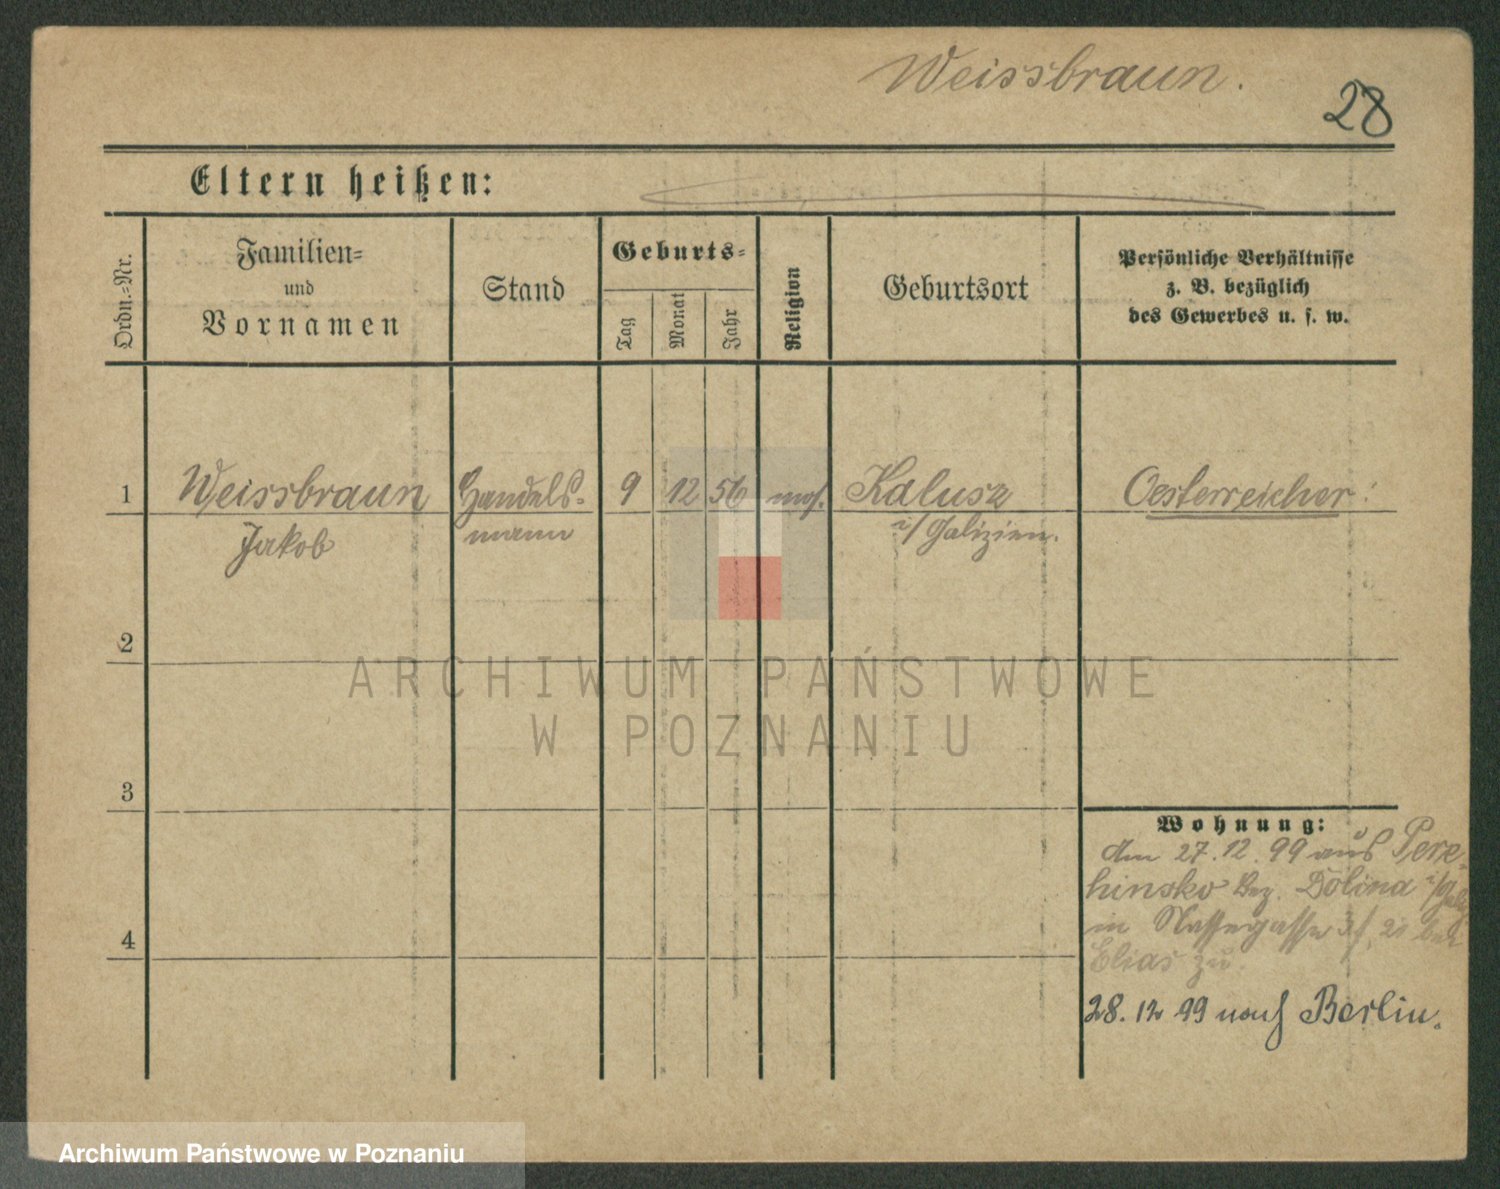 Weissbraun.
28
Eltern heißen:
Ordn.=Nr.
Familien=
und
Vornamen
Stand
Geburts=
Tag
Monat
Jahr
Religion
Geburtsort
Persönliche Verhältnisse
z. B. bezüglich
des Gewerbes u. s. w.
1
Weissbraun
Jakob
Handels-
mann
9
12
56
mos.
Kalusz
i/ Galizien.
Oesterreicher.
2
ARCHIWUM PAŃSTWOWE
W POZNANIU
3
Wohnung:
Am 27.12.99 aus Pere-
hinsko Bez. Dolina i/Galiz
in Nassegasse bei
Elias zu.
28.12 99 nach Berlin.
4
Archiwum Państwowe w Poznaniu